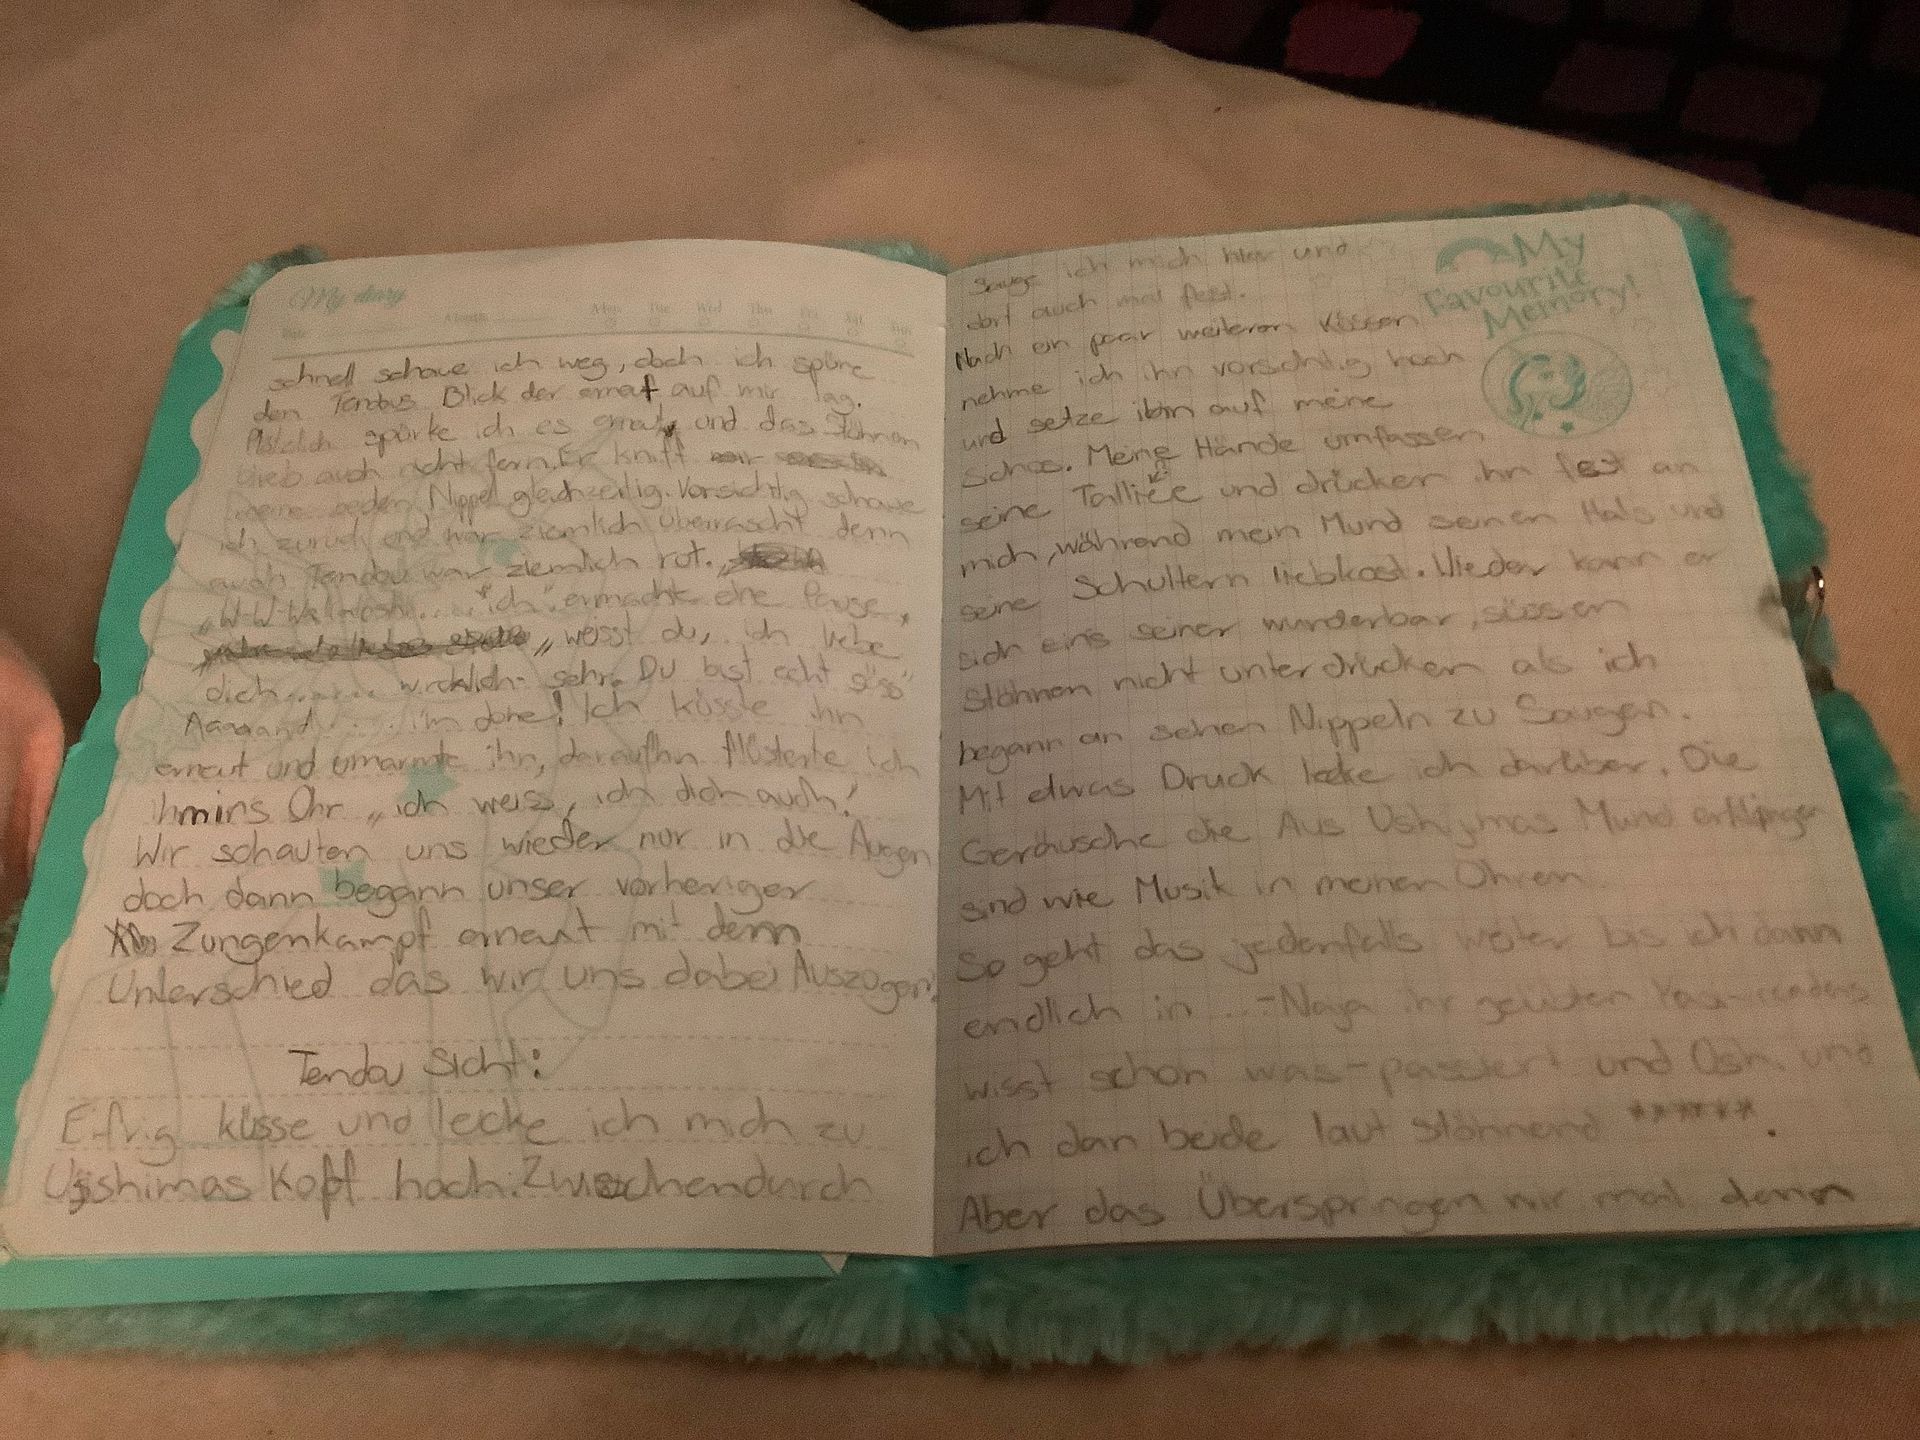 My diary
Mon Tue Wed Thu Fri Sat Sun
schnell schaue ich weg, doch ich spüre
den Tendous Blick der erneut auf mir lag.
Plötzlich spürte ich es erneut, und das Stöhnen
blieb auch nicht fern. Er kniff
meine beiden Nippel gleichzeitig. Vorsichtig schaue
ich zurück und war ziemlich überrascht denn
auch Tendou war ziemlich rot.
„W-W-Wakatoshi.... „ich" er machte eine Pause,
„weisst du, ich liebe
dich....... wircklich sehr. Du bist echt süss"
Aaaaand..... i'm done! Ich küsste ihn
erneut und umarmte ihn, daraufhin flüsterte ich
ihm ins Ohr „ich weiss, ich dich auch!
Wir schauten uns wieder nur in die Augen
doch dann begann unser vorheriger
Zungenkampf erneut mit dem
Unterschied das wir uns dabei Auszogen!
Tendou Sicht:
Eifrig küsse und lecke ich mich zu
Usshimas Kopf hoch. Zwischendurch
My
Favourite
Memory!
Sauge ich mich hier und
dort auch mal fest.
Nach ein paar weiteren Küssen
nehme ich ihn vorsichtig hoch
und setze ihn auf meine
Schoss. Meine Hände umfassen
seine Talliee und drücken ihn fest an
mich, während mein Mund seinen Hals und
seine Schultern liebkost. Wieder kann er
sich eins seiner wunderbar, süssen
Stöhnen nicht unterdrücken als ich
begann an seinen Nippeln zu Saugen.
Mit etwas Druck lecke ich darüber. Die
Geräusche die Aus Ushijimas Mund erklingen
sind wie Musik in meinen Ohren
So geht das jedenfalls weiter bis ich dann
endlich in ...-Naja ihr geübten Yaoi-readers
wisst schon was- passiert und Ushi und
ich dan beide laut stöhnend ******.
Aber das Überspringen wir mal denn